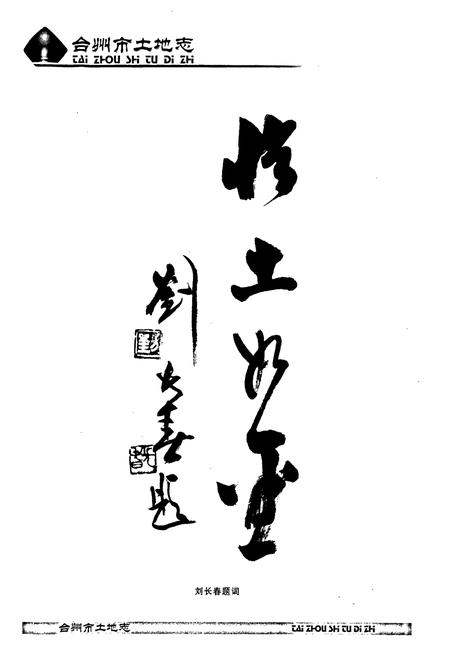 台州市土地志
TAI ZHOU SHI TU DI ZHI
惜土如金
劉长春題
刘长春题词
台州市土地志
TAI ZHOU SHI TU DI ZHI